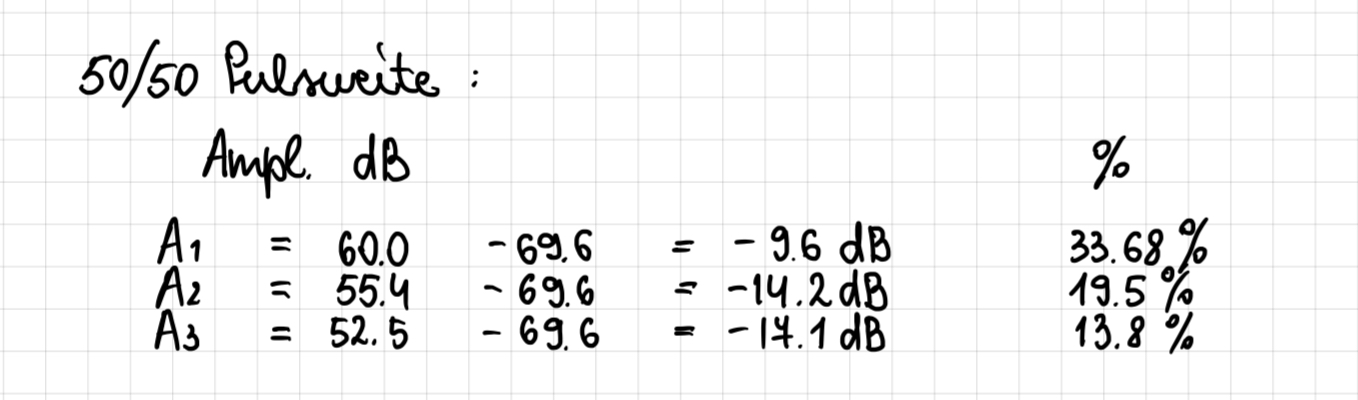 50/50 Pulsweite :
Ampl. dB %
A1 = 60.0 - 69.6 = - 9.6 dB 33.68 %
A2 = 55.4 - 69.6 = -14.2 dB 19.5 %
A3 = 52.5 - 69.6 = -17.1 dB 13.8 %